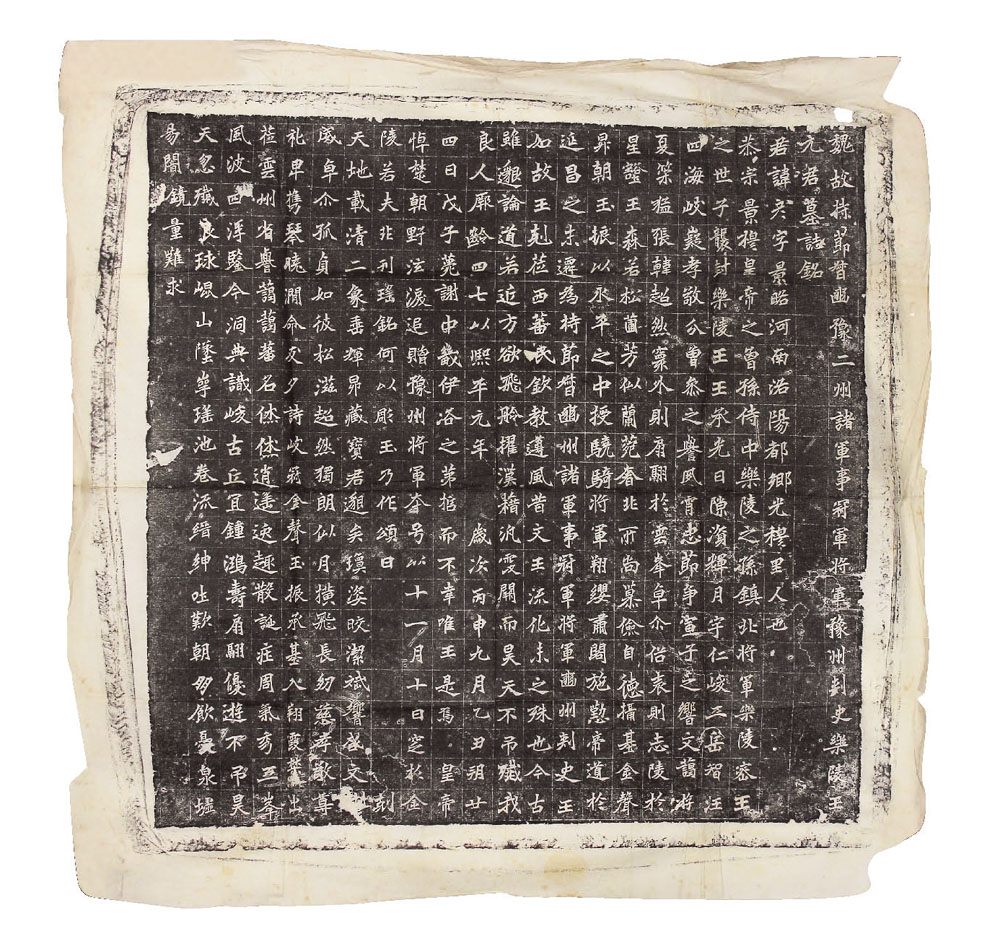 魏故持莭督豳豫二州諸軍事冠軍將軍豫州刾史樂陵王
元君墓誌銘
君諱彦字景昭河南洛陽都鄉光穆里人也
恭宗景穆皇帝之曾孫侍中樂陵之孫鎮北將軍樂陵密王
之世子襲封樂陵王王承光日隙資輝月宇仁峻五岳智汪
四海岐嶷孝敬分曾參之譽夙宵忠莭爭宣子之響文藹將
夏筞猛張韓超然寡外則肩翮於雲峯卓介俗袁則志陵於
星發王森若松蘭芳似蘭菀春非所尚慕儉自德揩基金聲
昇朝玉振以永平之中授驍騎將軍翔纓肅閣施懃帝道於
延昌之未遷為持莭督豳州諸軍事冠軍將軍豳州刾史王
如故王剋莅西蕃民欽教遵風昔文王流化未之殊也今古
雖邈論道若近方欲飛舲擢漢藉汎雯開而昊天不弔殲我
良人厤齡四七以熙平元年歲次丙申九月乙丑朔廿
四日戊子薨謝中畿伊洛之第振而不幸唯王是焉皇帝
悼楚朝野泫淚追贈豫州將軍夲号以十一月十日窆於金
陵若夫非刊瑤銘何以彫玉乃作頌曰
天地載清二象垂輝昴藏寶君邈矣瓊姿皎潔斌響盛文刻
風卓介孤貞如彼松滋超然獨朗似月橫飛長幼慈孝敬尊
礼卑攜琴曉澗命友夕詩岐嶷金聲玉振承基入翔霞出
莅雲州省譽藹藹蕃名休休逍遙遠趣散誕莊周氣秀五峯
風波四浮鑒今洞典識峻古丘宜鍾鴻壽肩翮優遊不弔昊
天忽殲良球崐山墜㟧瑤池卷流縉紳吐歎朝野飲憂泉壚
易闇鏡量難求